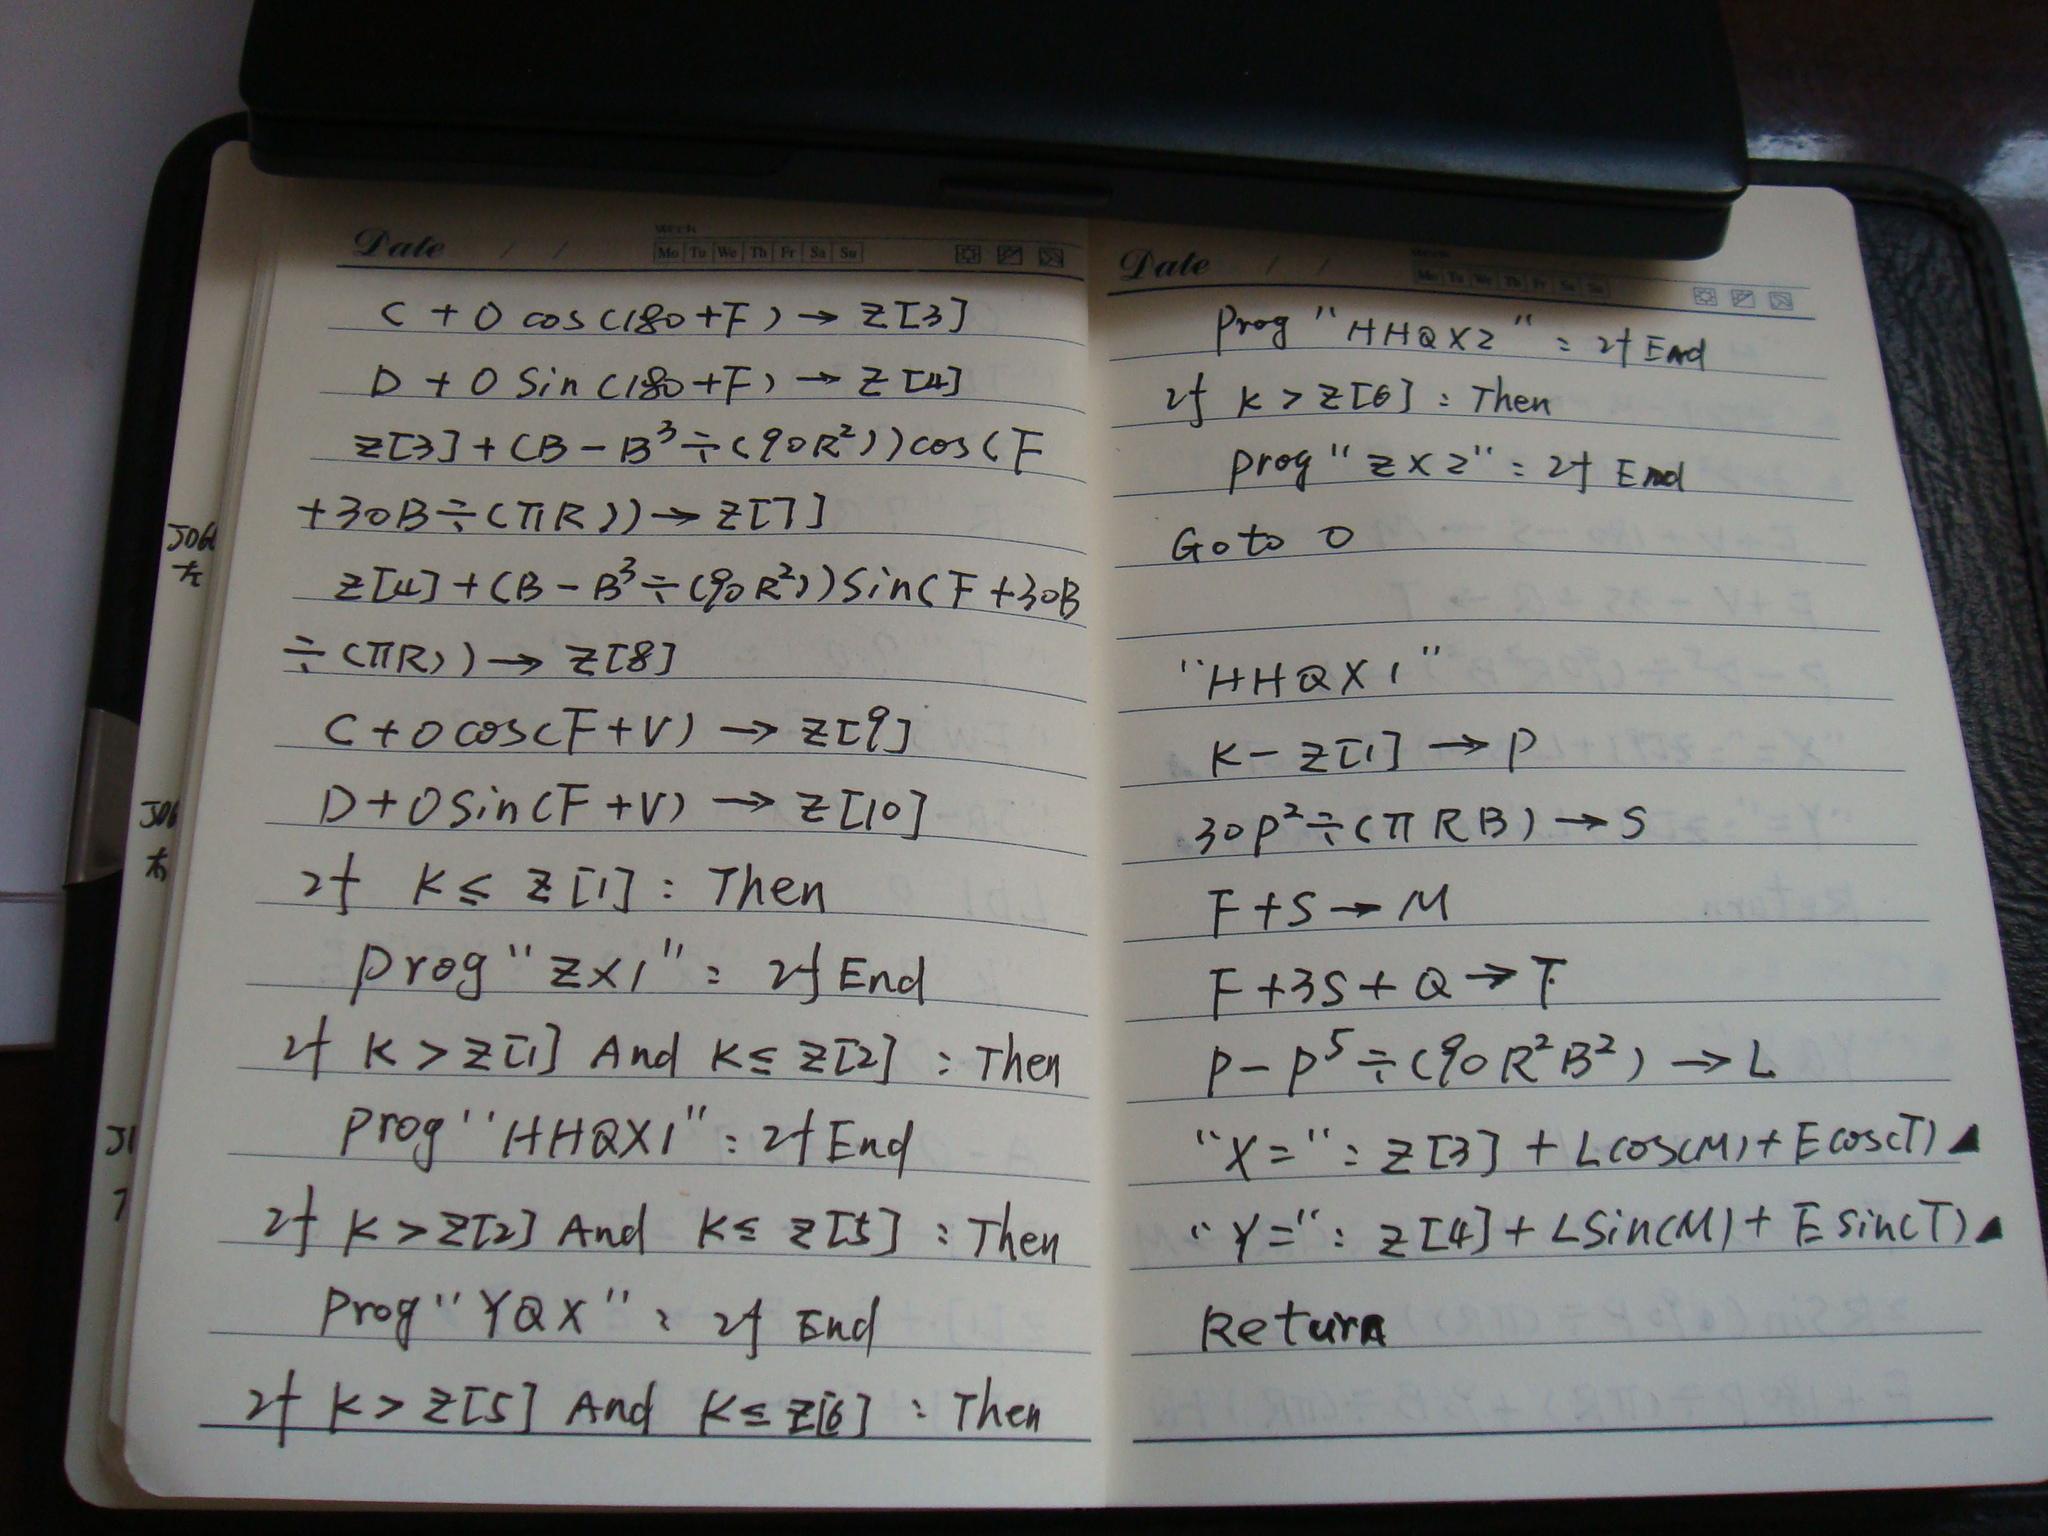 Date / /
Week
Mo Tu We Th Fr Sa Su
C + O cos(180+F) → Z[3]
D + O Sin(180+F) → Z[4]
Z[3] + (B - B³ ÷ (90R²)) cos(F
+30B ÷ (πR)) → Z[7]
Z[4] + (B - B³ ÷ (90R²)) Sin(F+30B
÷(πR)) → Z[8]
C + O cos(F+V) → Z[9]
D + O Sin(F+V) → Z[10]
If K ≤ Z[1] : Then
Prog "ZX1" : If End
If K > Z[1] And K ≤ Z[2] : Then
Prog "HHQX1" : If End
If K > Z[2] And K ≤ Z[5] : Then
Prog "YQX" : If End
If K > Z[5] And K ≤ Z[6] : Then
Date / /
Mo Tu We Th Fr Sa Su
Prog "HHQX2" : If End
If K > Z[6] : Then
Prog "ZX2" : If End
Goto 0
"HHQX1"
K - Z[1] → P
30P² ÷ (πRB) → S
F + S → M
F + 3S + Q → T
P - P⁵ ÷ (90R²B²) → L
"X=" : Z[3] + Lcos(M) + Ecos(T)◢
"Y=" : Z[4] + LSin(M) + ESin(T)◢
Return